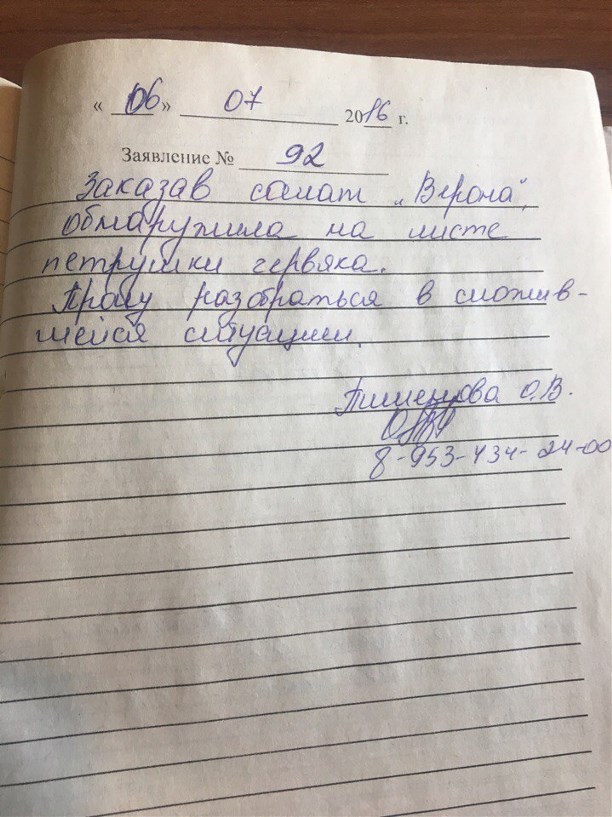 « 06 » 07 2016 г.
Заявление № 92
Заказав салат „Верона",
обнаружила на листе
петрушки червяка.
Прошу разобраться в сложив-
шейся ситуации.
О.В.
8-953-434-24-00